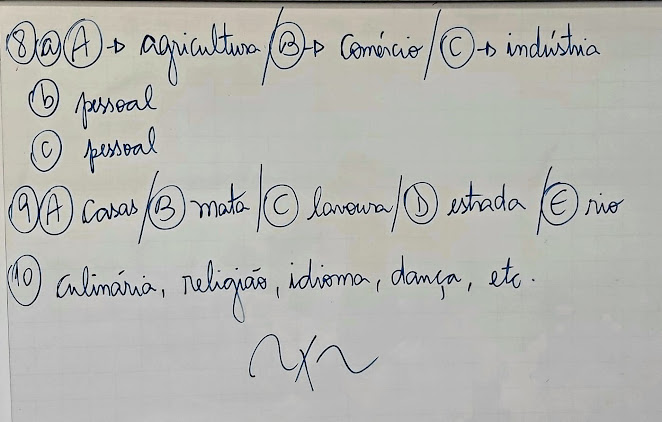 8 a A → agricultura / B → Comércio / C → indústria
b pessoal
c pessoal
9 A casas / B mata / C lavoura / D estrada / E rio
10 culinária, religião, idioma, dança, etc.